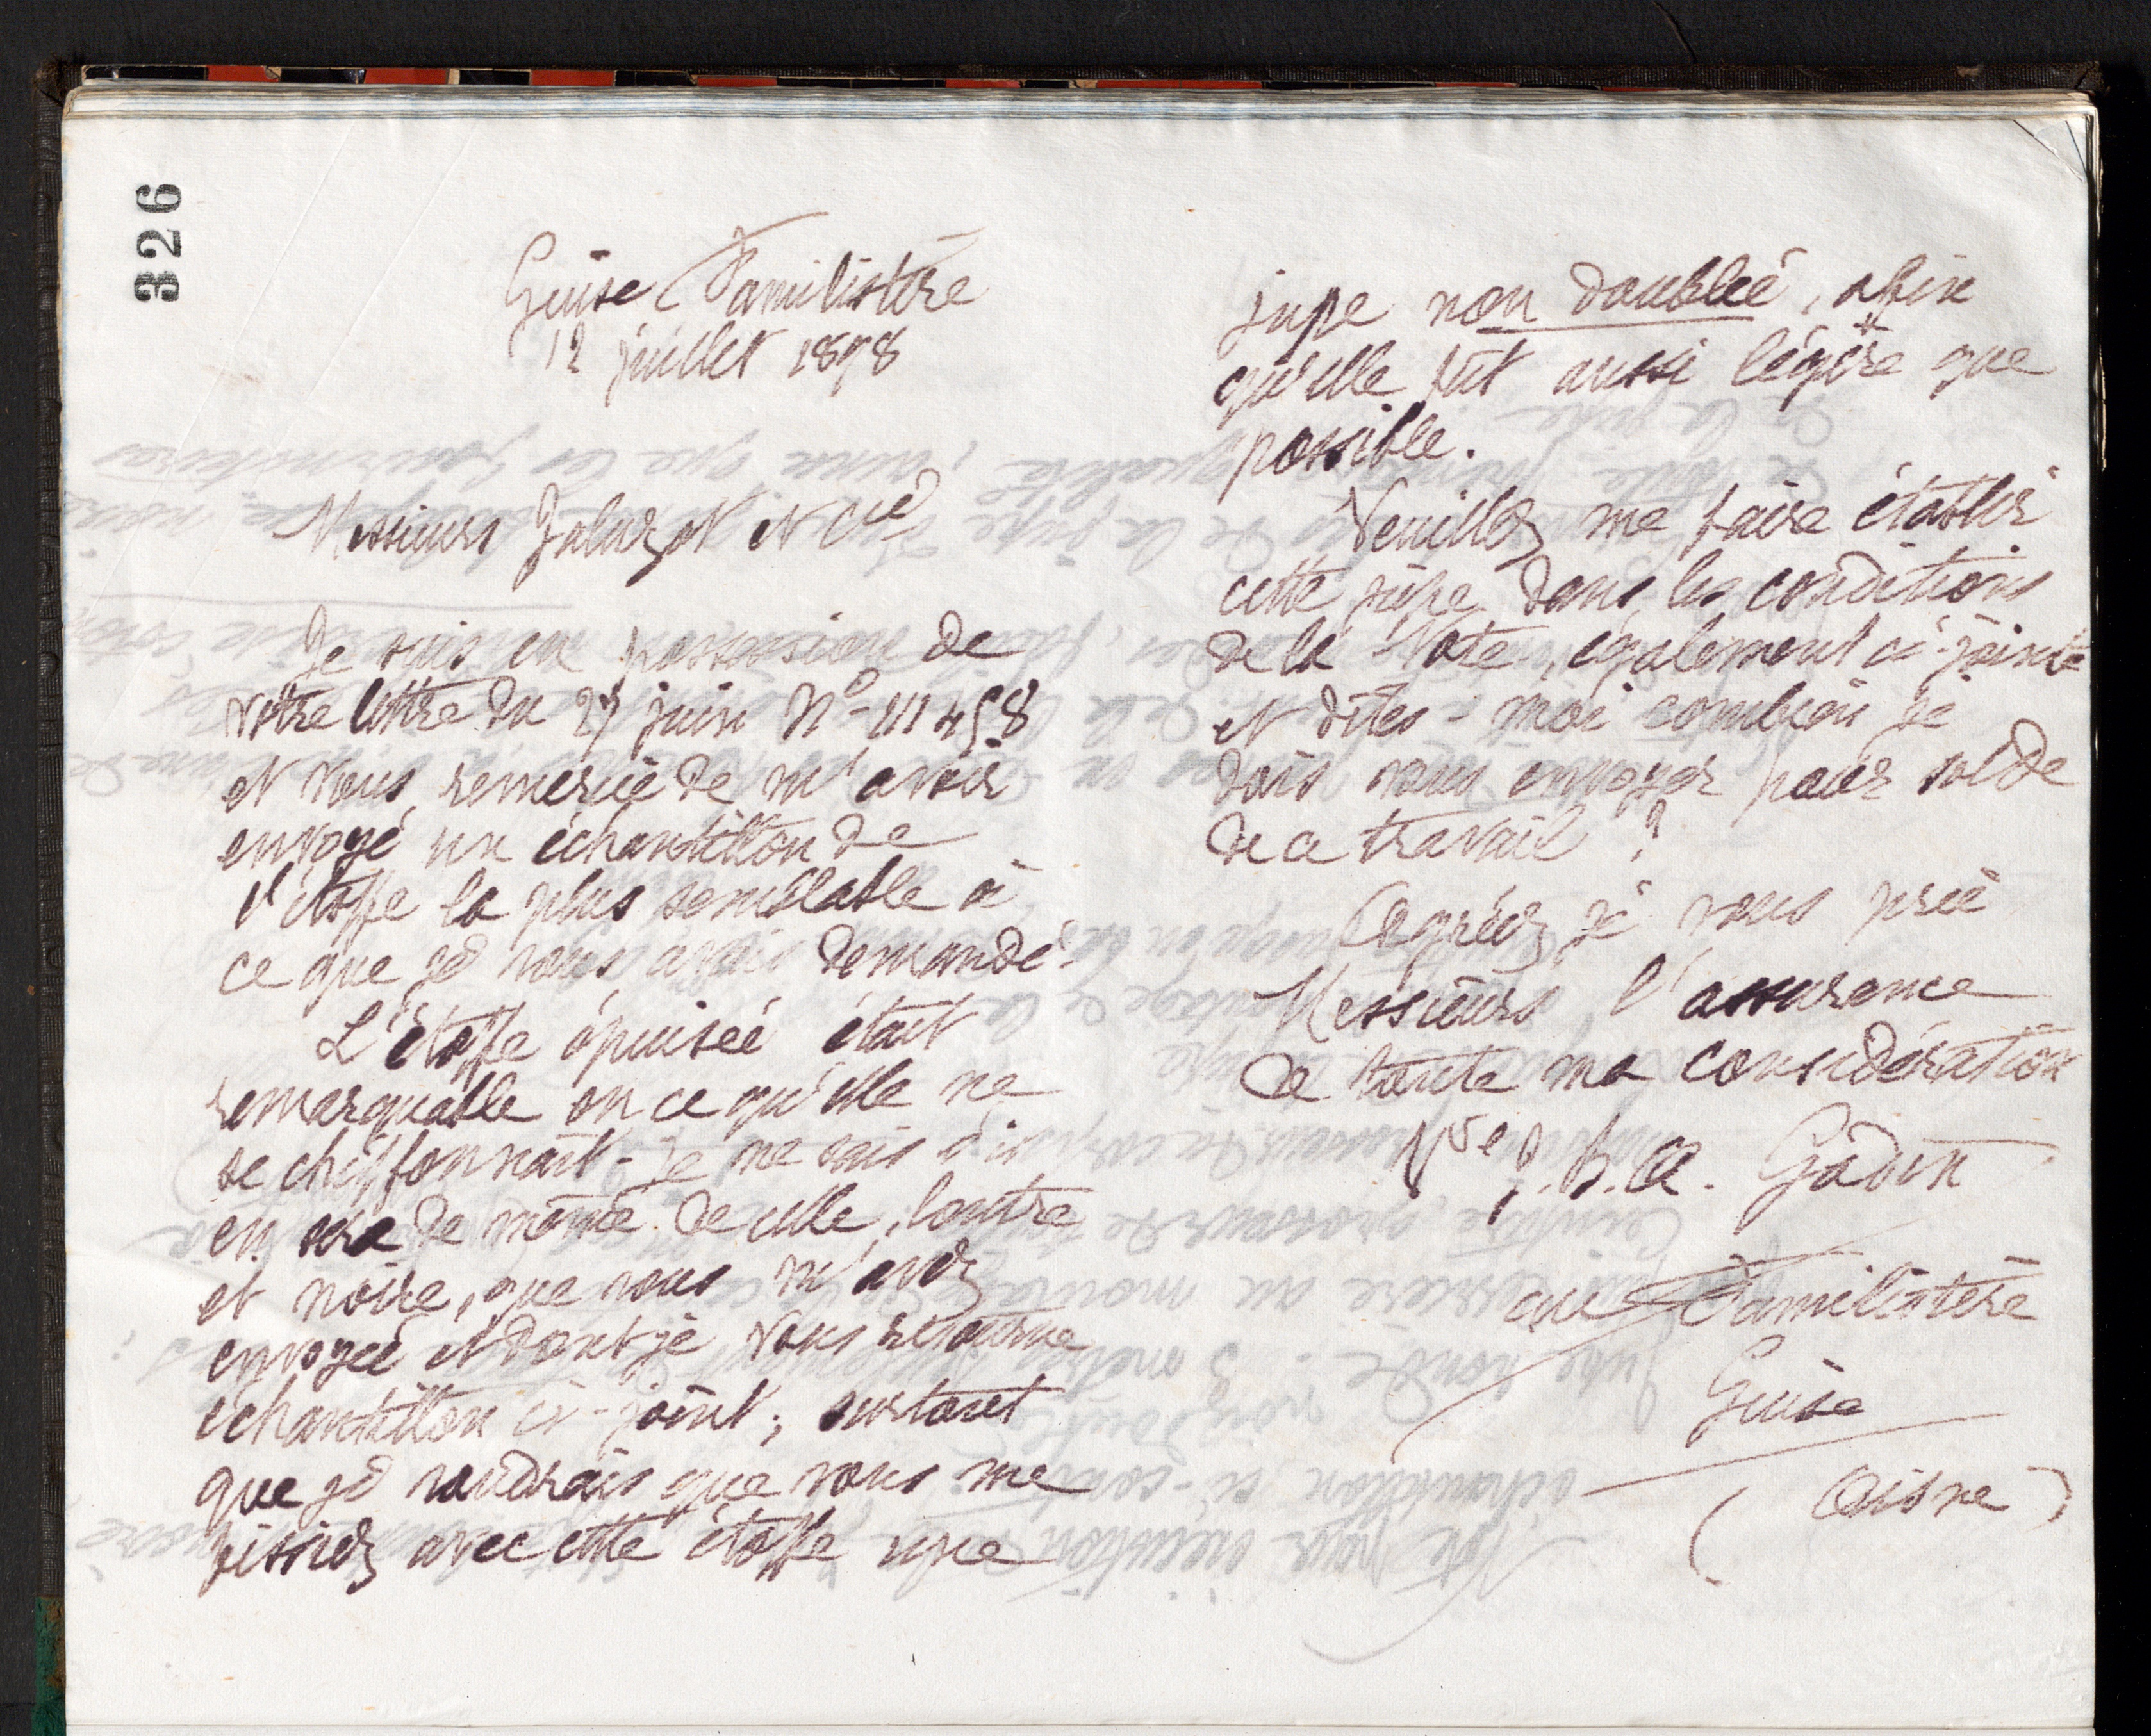 326
Guise Familistère
12 juillet 1898
Messieurs Jaluzot et Cie
Je suis en possession de
votre lettre du 27 juin No
et vous remercie de m'avoir
envoyé un échantillon de
l'étoffe la plus semblable à
ce que je vous avais demandé.
L'étoffe épuisée était
remarquable en ce qu'elle ne
se chiffonnait. Je ne sais s'il
en sera de même de celle, loutre
et noire, que vous m'avez
envoyée et dont je vous retourne
échantillon ci-joint ; surtout
que je voudrais que vous me
fissiez avec cette étoffe une
jupe non doublée, afin
qu'elle fût aussi légère que
possible.
Veuillez me faire établir
cette jupe dans les conditions
de la Note, également ci-jointe
et dites-moi combien je
dois vous envoyer pour solde
de ce travail ?
Agréez je vous prie
Messieurs l'assurance
de toute ma considération
Vve J. B. A. Godin
au Familistère
Guise
(Aisne)